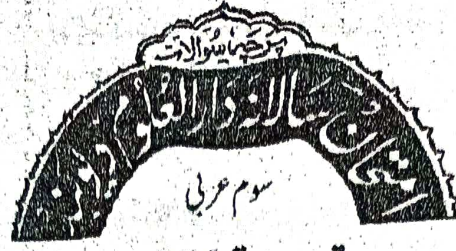 پرچہ سوالات
امتحان سالانہ دارالعلوم دیوبند
سوم عربی